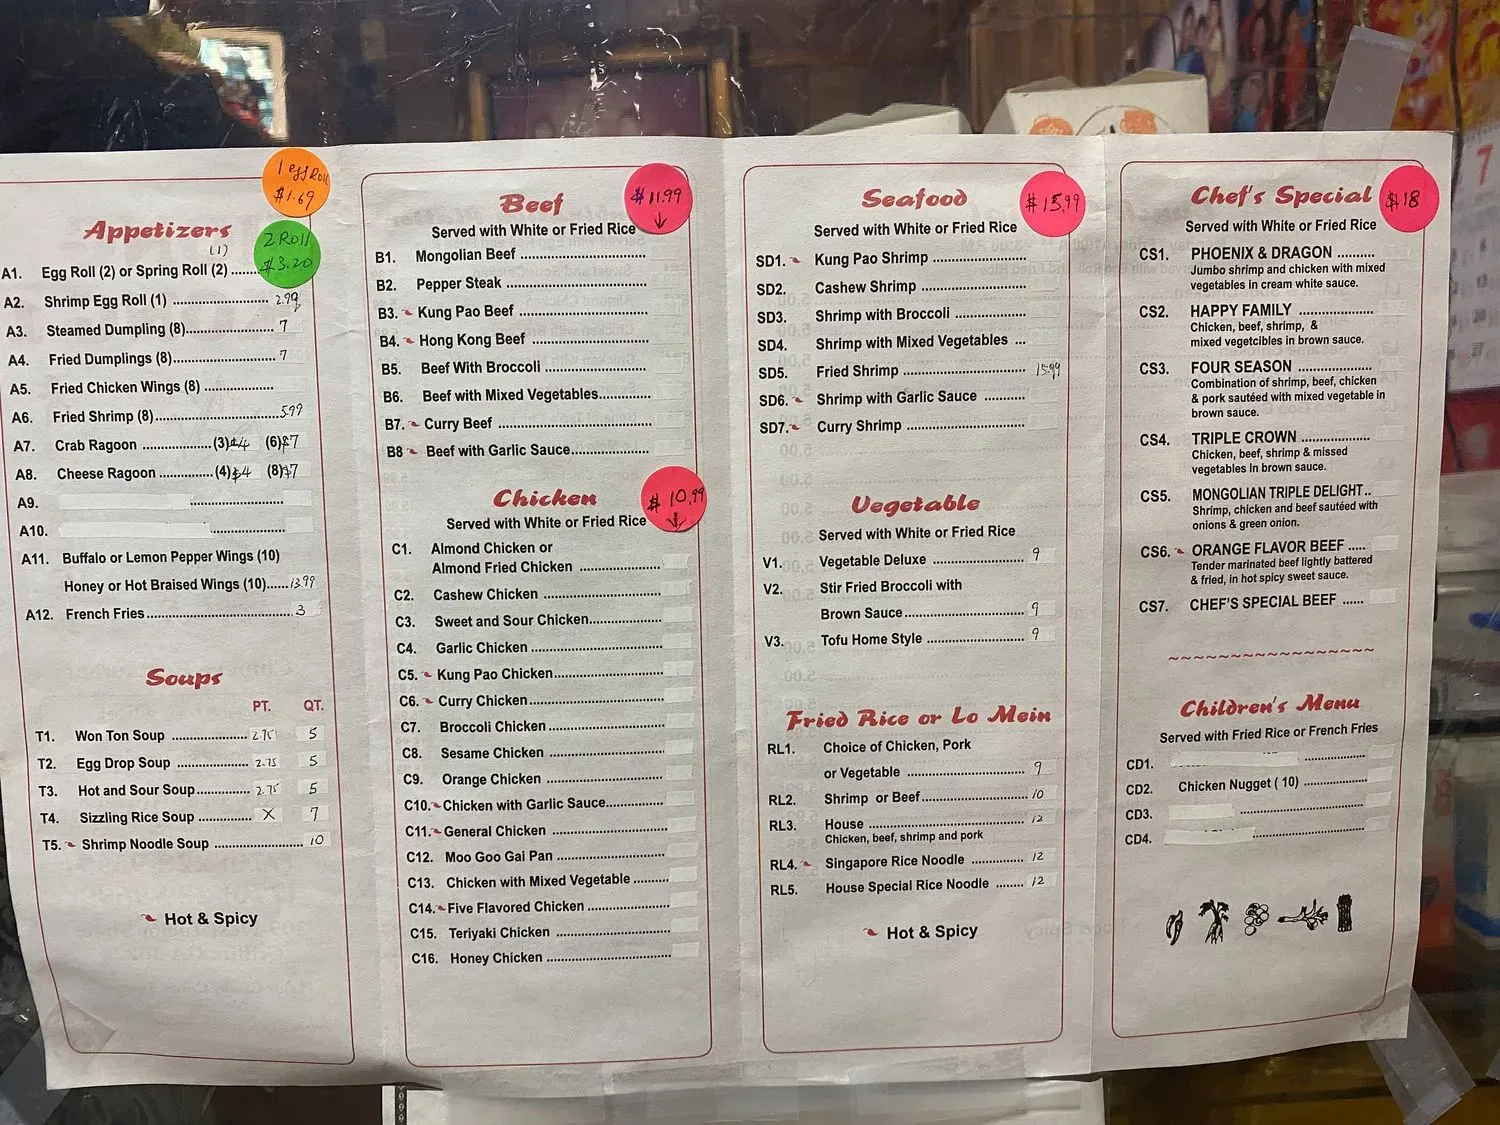 1 egg Roll
$1.69
Appetizers
(1)
2 Roll
$3.20
A1. Egg Roll (2) or Spring Roll (2) ......
A2. Shrimp Egg Roll (1) ........................ 2.99
A3. Steamed Dumpling (8)...................... 7
A4. Fried Dumplings (8)......................... 7
A5. Fried Chicken Wings (8) .................
A6. Fried Shrimp (8)...............................5.99
A7. Crab Ragoon .................(3)$4 (6)$7
A8. Cheese Ragoon .............(4)$4 (8)$7
A9. .......................
A10. ..................
A11. Buffalo or Lemon Pepper Wings (10)
Honey or Hot Braised Wings (10)......13.99
A12. French Fries..................................... 3
Soups
PT. QT.
T1. Won Ton Soup ................... 2.75 5
T2. Egg Drop Soup ................... 2.75 5
T3. Hot and Sour Soup............. 2.75 5
T4. Sizzling Rice Soup .............. X 7
T5. Shrimp Noodle Soup ...................... 10
Hot & Spicy
Beef
$11.99
Served with White or Fried Rice
B1. Mongolian Beef ................................
B2. Pepper Steak ...................................
B3. Kung Pao Beef ................................
B4. Hong Kong Beef .............................
B5. Beef With Broccoli ..........................
B6. Beef with Mixed Vegetables.............
B7. Curry Beef ......................................
B8 Beef with Garlic Sauce....................
Chicken
$10.99
Served with White or Fried Rice
C1. Almond Chicken or
Almond Fried Chicken ....................
C2. Cashew Chicken .............................
C3. Sweet and Sour Chicken..................
C4. Garlic Chicken .................................
C5. Kung Pao Chicken...........................
C6. Curry Chicken..................................
C7. Broccoli Chicken .............................
C8. Sesame Chicken .............................
C9. Orange Chicken ..............................
C10. Chicken with Garlic Sauce..............
C11. General Chicken .............................
C12. Moo Goo Gai Pan ...........................
C13. Chicken with Mixed Vegetable .........
C14. Five Flavored Chicken .....................
C15. Teriyaki Chicken .............................
C16. Honey Chicken ................................
Seafood
$15.99
Served with White or Fried Rice
SD1. Kung Pao Shrimp ...........................
SD2. Cashew Shrimp ..............................
SD3. Shrimp with Broccoli ......................
SD4. Shrimp with Mixed Vegetables ...
SD5. Fried Shrimp ................................ 15.99
SD6. Shrimp with Garlic Sauce ............
SD7. Curry Shrimp ................................
Vegetable
Served with White or Fried Rice
V1. Vegetable Deluxe ....................... 9
V2. Stir Fried Broccoli with
Brown Sauce.............................. 9
V3. Tofu Home Style ......................... 9
Fried Rice or Lo Mein
RL1. Choice of Chicken, Pork
or Vegetable .............................. 9
RL2. Shrimp or Beef........................... 10
RL3. House ........................................ 12
Chicken, beef, shrimp and pork
RL4. Singapore Rice Noodle .............. 12
RL5. House Special Rice Noodle ........ 12
Hot & Spicy
Chef's Special
$18
Served with White or Fried Rice
CS1. PHOENIX & DRAGON ..........
Jumbo shrimp and chicken with mixed
vegetables in cream white sauce.
CS2. HAPPY FAMILY ....................
Chicken, beef, shrimp, &
mixed vegetcibles in brown sauce.
CS3. FOUR SEASON ....................
Combination of shrimp, beef, chicken
& pork sautéed with mixed vegetable in
brown sauce.
CS4. TRIPLE CROWN ...................
Chicken, beef, shrimp & missed
vegetables in brown sauce.
CS5. MONGOLIAN TRIPLE DELIGHT..
Shrimp, chicken and beef sautéed with
onions & green onion.
CS6. ORANGE FLAVOR BEEF .....
Tender marinated beef lightly battered
& fried, in hot spicy sweet sauce.
CS7. CHEF'S SPECIAL BEEF ......
~~~~~~~~~~~~~~~~~
Children's Menu
Served with Fried Rice or French Fries
CD1. ................
CD2. Chicken Nugget ( 10) ................
CD3. ................................
CD4. ............................
7